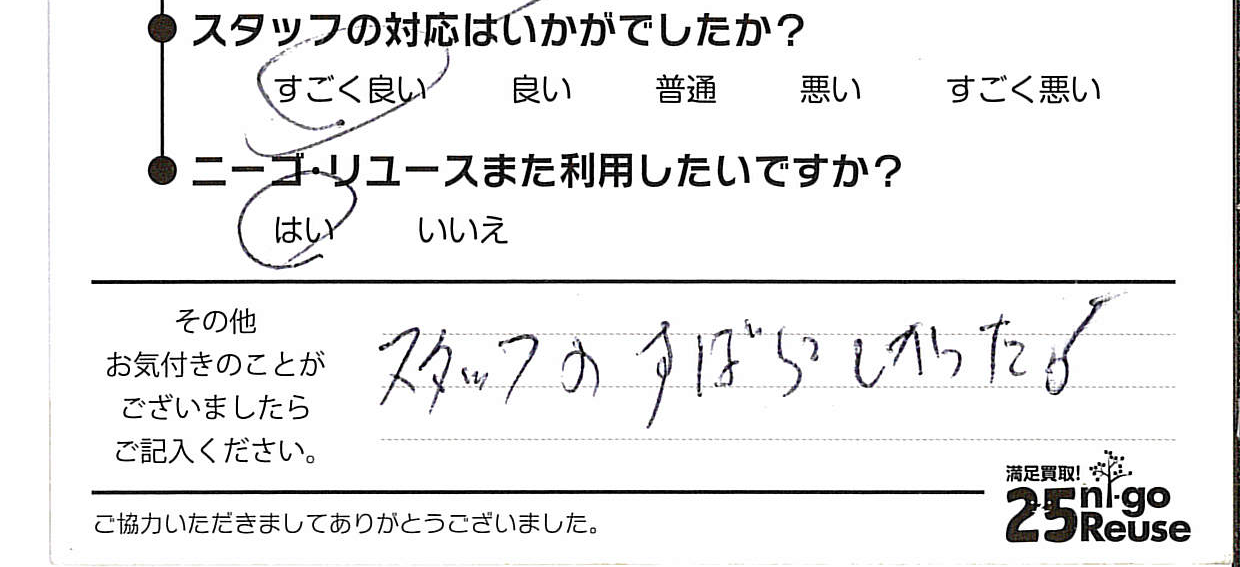 スタッフの対応はいかがでしたか？
すごく良い 良い 普通 悪い すごく悪い
ニーゴ・リユースまた利用したいですか？
はい いいえ
その他
お気付きのことが
ございましたら
ご記入ください。
スタッフのすばらしかった
満足買取!
25 ni-go
Reuse
ご協力いただきましてありがとうございました。